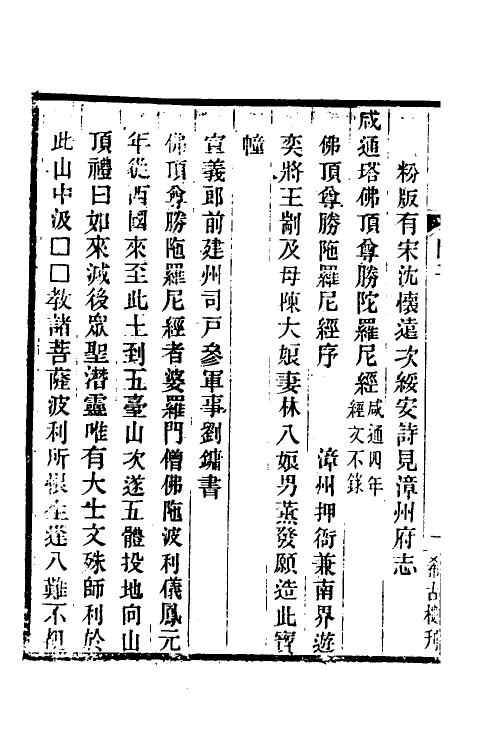 粉版有宋沈懷遠次綏安詩見漳州府志
咸通塔佛頂尊勝陀羅尼經咸通四年經文不錄
佛頂尊勝陁羅尼經序　漳州押衙兼南界遊
奕將王劇及母陳大娘妻林八娘男蒸發願造此寶
幢
宣義郎前建州司戶參軍事劉鏞書
佛頂尊勝陁羅尼經者婆羅門僧佛陁波利儀鳳元
年從西國來至此土到五臺山次遂五體投地向山
頂禮曰如來滅後眾聖潛靈唯有大士文殊師利於
此山中汲□□教諸菩薩波利所恨生逢八難不
希古樓刊